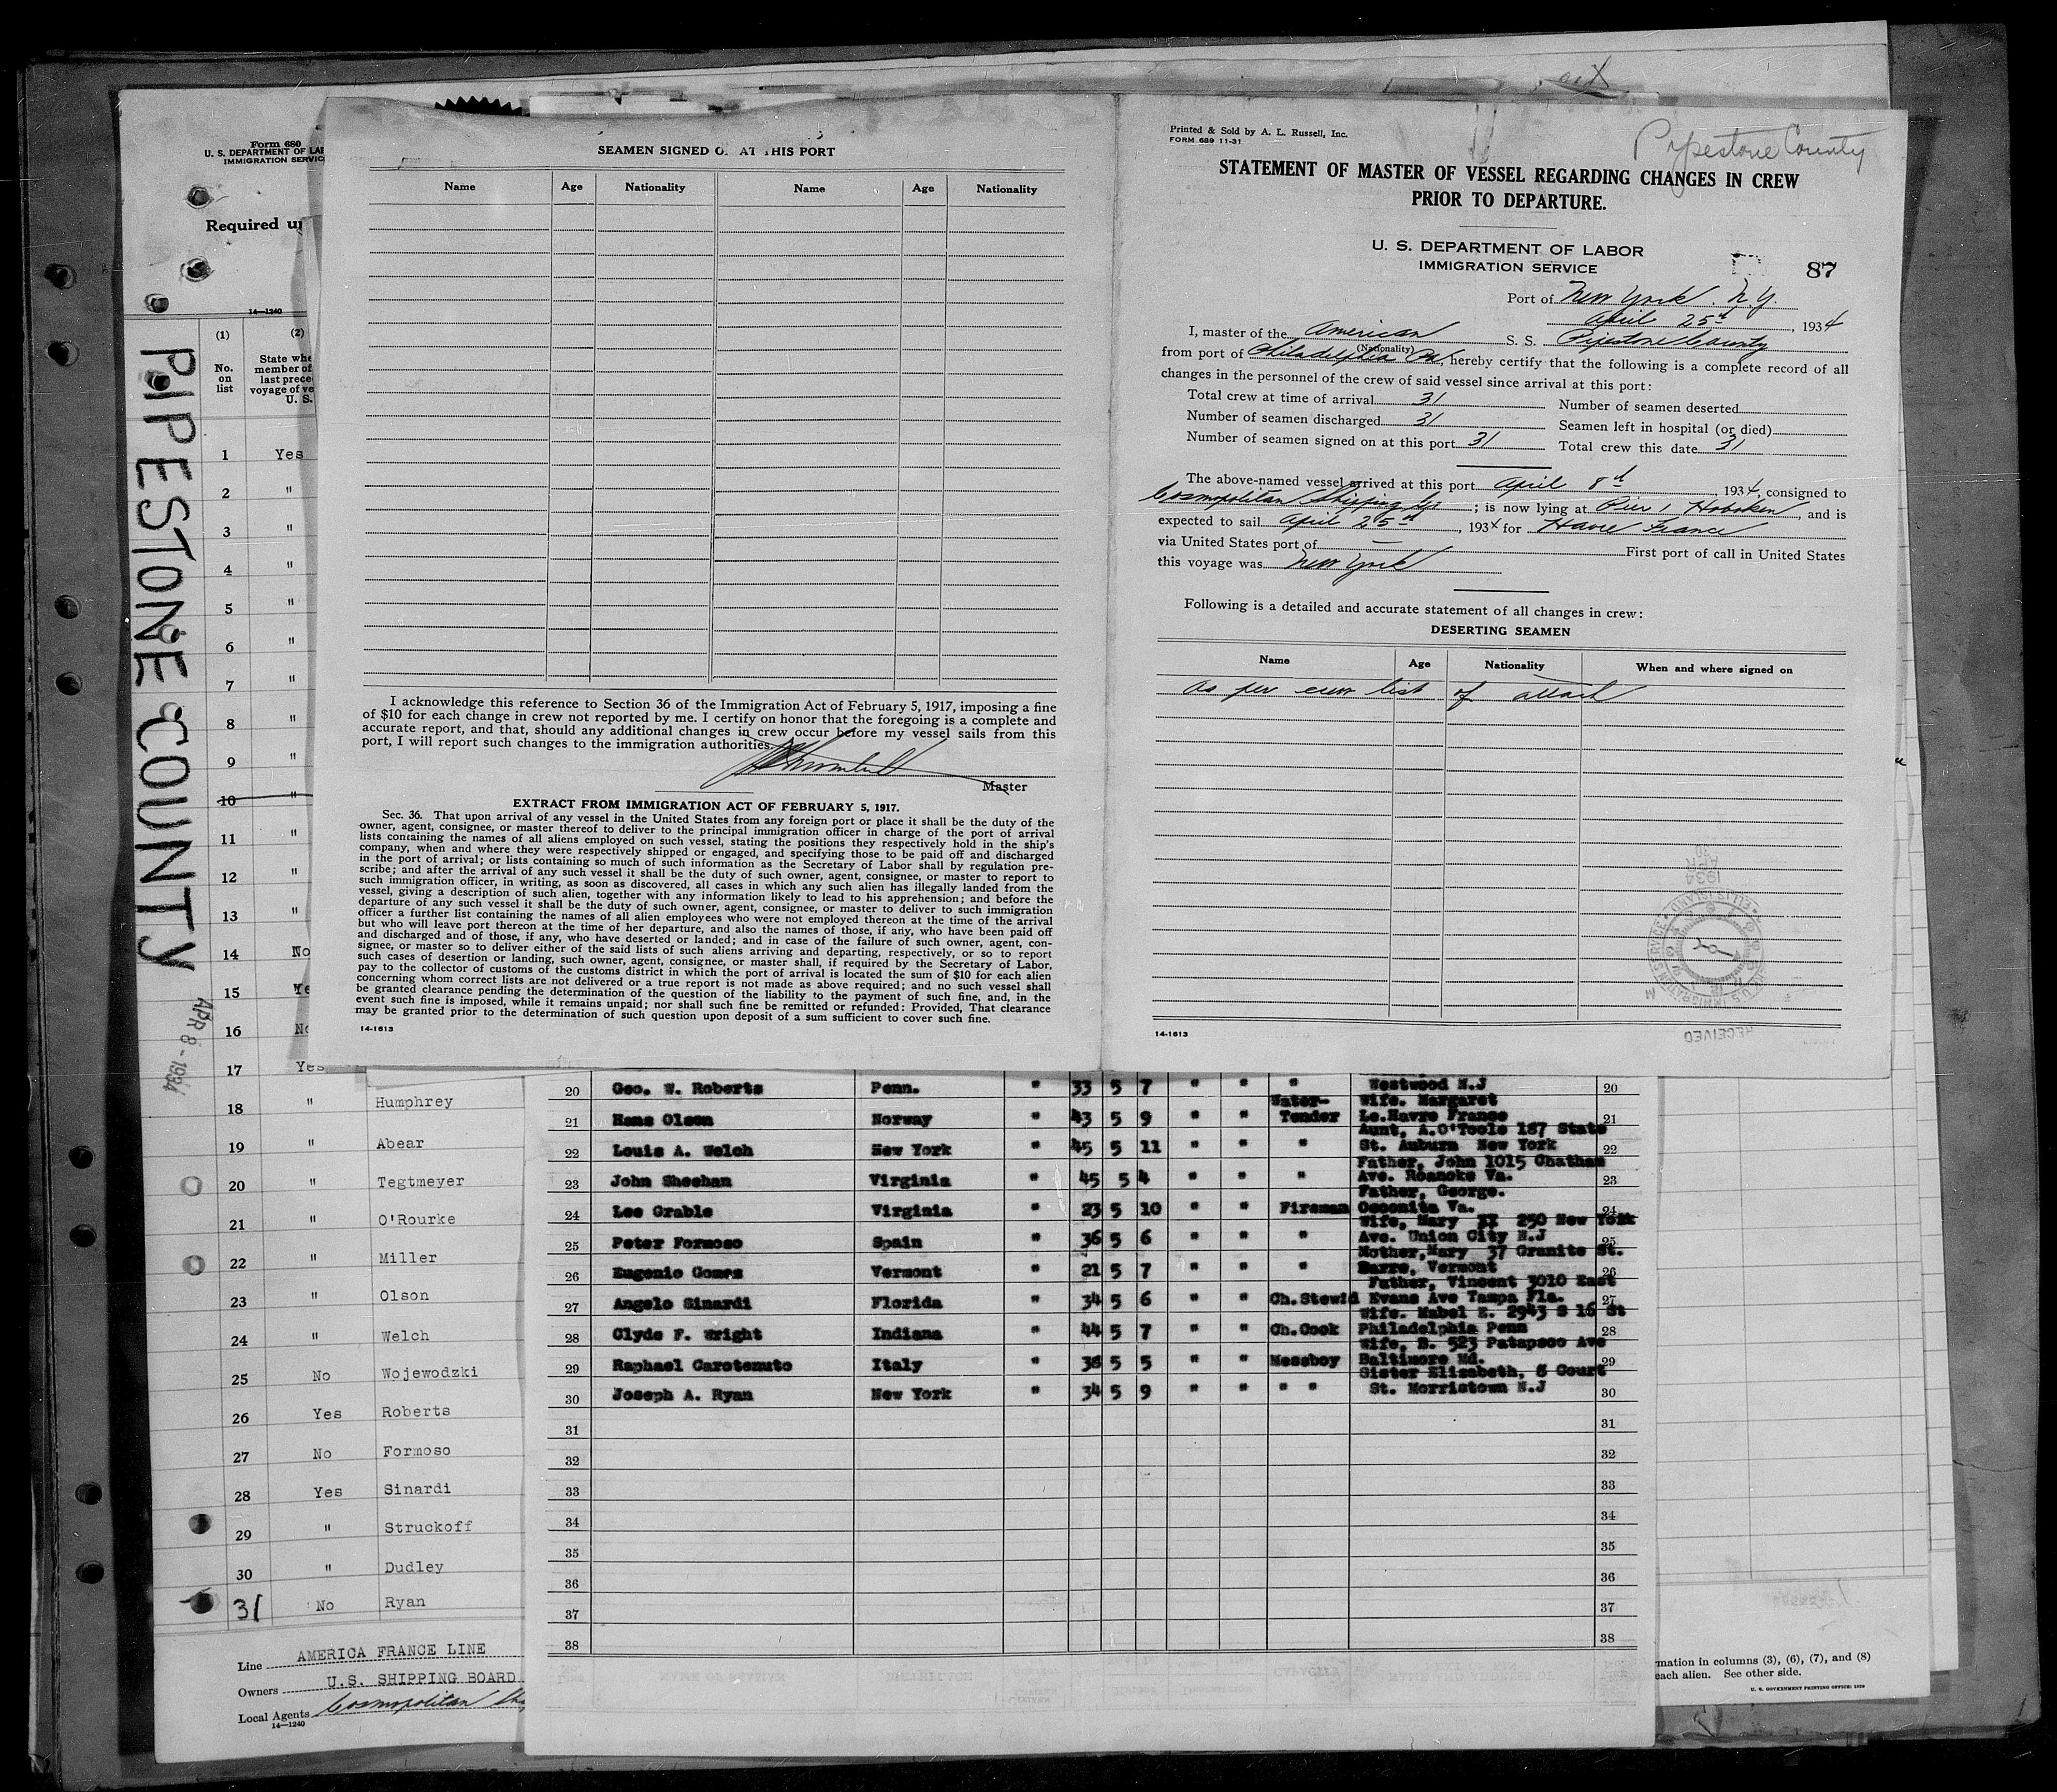 Form 680
U. S. DEPARTMENT OF LAB
IMMIGRATION SERVIC
Required u
14—1240
(1) (2)
No. on list
State whe
member of
last prece
voyage of ve
U. S.
PIPESTONE COUNTY
APR 8 - 1934
1 Yes
2 "
3 "
4 "
5 "
6 "
7 "
8 "
9 "
10 "
11 "
12 "
13 "
14 No
15 Ye
16 No
17 Yes
18 " Humphrey
19 " Abear
20 " Tegtmeyer
21 " O'Rourke
22 " Miller
23 " Olson
24 " Welch
25 No Wojewodzki
26 Yes Roberts
27 No Formoso
28 Yes Sinardi
29 " Struckoff
30 " Dudley
31 No Ryan
Line AMERICA FRANCE LINE
Owners U.S. SHIPPING BOARD
Local Agents Cosmopolitan Sh
14—1240
SEAMEN SIGNED O AT THIS PORT
Name Age Nationality Name Age Nationality
I acknowledge this reference to Section 36 of the Immigration Act of February 5, 1917, imposing a fine
of $10 for each change in crew not reported by me. I certify on honor that the foregoing is a complete and
accurate report, and that, should any additional changes in crew occur before my vessel sails from this
port, I will report such changes to the immigration authorities.
Master
EXTRACT FROM IMMIGRATION ACT OF FEBRUARY 5, 1917.
Sec. 36. That upon arrival of any vessel in the United States from any foreign port or place it shall be the duty of the
owner, agent, consignee, or master thereof to deliver to the principal immigration officer in charge of the port of arrival
lists containing the names of all aliens employed on such vessel, stating the positions they respectively hold in the ship's
company, when and where they were respectively shipped or engaged, and specifying those to be paid off and discharged
in the port of arrival; or lists containing so much of such information as the Secretary of Labor shall by regulation pre-
scribe; and after the arrival of any such vessel it shall be the duty of such owner, agent, consignee, or master to report to
such immigration officer, in writing, as soon as discovered, all cases in which any such alien has illegally landed from the
vessel, giving a description of such alien, together with any information likely to lead to his apprehension; and before the
departure of any such vessel it shall be the duty of such owner, agent, consignee, or master to deliver to such immigration
officer a further list containing the names of all alien employees who were not employed thereon at the time of the arrival
but who will leave port thereon at the time of her departure, and also the names of those, if any, who have been paid off
and discharged and of those, if any, who have deserted or landed; and in case of the failure of such owner, agent, con-
signee, or master so to deliver either of the said lists of such aliens arriving and departing, respectively, or so to report
such cases of desertion or landing, such owner, agent, consignee, or master shall, if required by the Secretary of Labor,
pay to the collector of customs of the customs district in which the port of arrival is located the sum of $10 for each alien
concerning whom correct lists are not delivered or a true report is not made as above required; and no such vessel shall
be granted clearance pending the determination of the question of the liability to the payment of such fine, and, in the
event such fine is imposed, while it remains unpaid; nor shall such fine be remitted or refunded: Provided, That clearance
may be granted prior to the determination of such question upon deposit of a sum sufficient to cover such fine.
14-1613
Printed & Sold by A. L. Russell, Inc.
FORM 689 11-31
Pipestone County
STATEMENT OF MASTER OF VESSEL REGARDING CHANGES IN CREW
PRIOR TO DEPARTURE.
U. S. DEPARTMENT OF LABOR
IMMIGRATION SERVICE
87
Port of New York. N.Y.
April 25th, 1934
I, master of the American S. S. Pipestone County
(Nationality)
from port of Philadelphia Pa, hereby certify that the following is a complete record of all
changes in the personnel of the crew of said vessel since arrival at this port:
Total crew at time of arrival 31 Number of seamen deserted
Number of seamen discharged 31 Seamen left in hospital (or died)
Number of seamen signed on at this port 31 Total crew this date 31
The above-named vessel arrived at this port April 8th, 1934, consigned to
Cosmopolitan Shipping Co; is now lying at Pier 1 Hoboken, and is
expected to sail April 25th, 1934 for Havre France
via United States port of — First port of call in United States
this voyage was New York
Following is a detailed and accurate statement of all changes in crew:
DESERTING SEAMEN
Name Age Nationality When and where signed on
as per crew list of attach
1934
APR
30
RECEIVED
14-1613
20 Geo. W. Roberts Penn. " 33 5 7 " " " Westwood N.J 20
Wife. Margaret
21 Hans Olson Norway " 43 5 9 " " Water-Tender Le.Havre France 21
Aunt, A.O'Toole 187 State
22 Louis A. Welch New York " 45 5 11 " " " St. Auburn New York 22
Father, John 1015 Chatham
23 John Sheehan Virginia " 45 5 4 " " " Ave. Roanoke Va. 23
Father, George.
24 Lee Grable Virginia " 23 5 10 " " Fireman Va. 24
Wife, Mary 250 New York
25 Peter Formoso Spain " 36 5 6 " " " Ave. Union City N.J 25
Mother,Mary 37 Granite St.
26 Eugenio Gomes Vermont " 21 5 7 " " " Barre, Vermont 26
Father, Vincent 3010 East
27 Angelo Sinardi Florida " 34 5 6 " " Ch.Stewid Evans Ave Tampa Fla. 27
Wife. Mabel E. 2943 S 16 St
28 Clyde F. Wright Indiana " 44 5 7 " " Ch.Cook Philadelphia Penn 28
Wife, B. 523 Patapsco Ave
29 Raphael Carotenuto Italy " 38 5 5 " " Messboy Baltimore Md. 29
Sister Elizabeth, 8 Court
30 Joseph A. Ryan New York " 34 5 9 " " " " St. Morristown N.J 30
31 31
32 32
33 33
34 34
35 35
36 36
37 37
38 38
mation in columns (3), (6), (7), and (8)
each alien. See other side.
U. S. GOVERNMENT PRINTING OFFICE: 1929